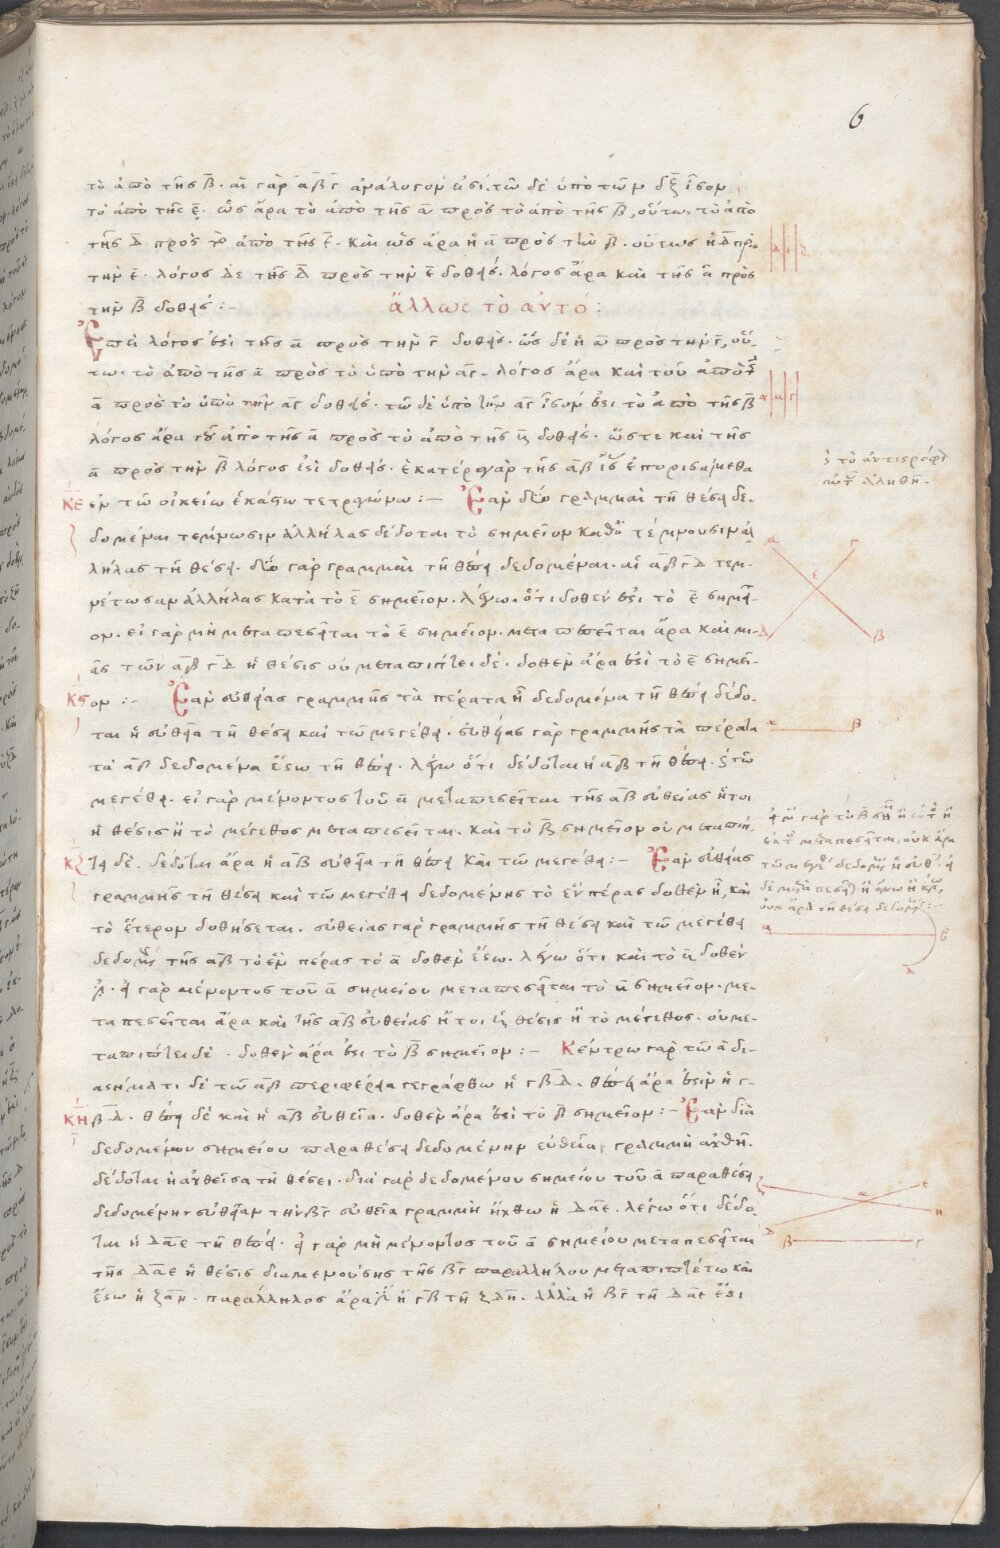 6
τὸ ἀπὸ τῆς β̅. αἱ γὰρ α̅β̅γ̅ ἀνάλογόν εἰσι. τῶ δὲ ὑπὸ τῶν δ̅ζ̅ ἴσον
τὸ ἀπὸ τῆς ε̅. ὡς ἄρα τὸ ἀπὸ τῆς α̅ πρὸς τὸ ἀπὸ τῆς β̅, οὕτω τὸ ἀπὸ
τῆς δ̅ πρὸς τὸ ἀπὸ τῆς ε̅. καὶ ὡς ἄρα ἡ α̅ πρὸς τὴν β̅. οὕτως ἡ δ̅ πρὸς
τὴν ε̅. λόγος δὲ τῆς δ̅ πρὸς τὴν ε̅ δοθείς. λόγος ἄρα καὶ τῆς α̅ πρὸς
τὴν β̅ δοθείς :– ἄλλως τὸ αὐτό :
Ἐπεὶ λόγος ἐστὶ τῆς α̅ πρὸς τὴν γ̅ δοθείς. ὡς δὲ ἡ α̅ πρὸς τὴν γ̅, οὕ-
τως τὸ ἀπὸ τῆς α̅ πρὸς τὸ ὑπὸ τὴν α̅γ̅. λόγος ἄρα καὶ τοῦ ἀπὸ τῆς
α̅ πρὸς τὸ ὑπὸ τὴν α̅γ̅ δοθείς. τῶ δὲ ὑπὸ τῶν α̅γ̅ ἴσον ἐστὶ τὸ ἀπὸ τῆς β̅
λόγος ἄρα τοῦ ἀπὸ τῆς α̅ πρὸς τὸ ἀπὸ τῆς β̅ δοθείς. ὥστε καὶ τῆς
α̅ πρὸς τὴν β̅ λόγος ἐστὶ δοθείς. ἑκατέρω γὰρ τῆς α̅β̅ ἐπορισάμεθα
ΚΕ ἐν τῶ οἰκείω ἑκάστω τετραγώνω :– Ἐὰν δύο γραμμαὶ τῆ θέσει δε-
δομέναι τέμνωσιν ἀλλήλας δέδοται τὸ σημεῖον καθὸ τέμνουσιν ἀλ
λήλας τῆ θέσει. δύο γὰρ γραμμαὶ τῆ θέσει δεδομέναι. αἱ α̅β̅ γ̅δ̅ τεμ-
νέτωσαν ἀλλήλας κατὰ τὸ ε̅ σημεῖον. λέγω. ὅτι δοθέν ἐστι τὸ ε̅ σημεῖ-
ον. εἰ γὰρ μὴ μεταπεσεῖται τὸ ε̅ σημεῖον. μεταπεσεῖται ἄρα καὶ μι-
ᾶς τῶν α̅β̅ γ̅δ̅ ἡ θέσις οὐ μεταπίπτει δέ. δοθὲν ἄρα ἐστὶ τὸ ε̅ σημεῖ-
Κς ον :– Ἐὰν εὐθείας γραμμῆς τὰ πέρατα ἦ δεδομένα τῆ θέσει δέδο-
ται ἡ εὐθεῖα τῆ θέσει καὶ τῶ μεγέθει. εὐθείας γὰρ γραμμῆς τὰ πέρατα
τὰ α̅β̅ δεδομένα ἔστω τῆ θέσει. λέγω ὅτι δέδοται ἡ α̅β̅ τῆ θέσει. καὶ τῶ
μεγέθει. εἰ γὰρ μένοντος τοῦ α̅ μεταπεσεῖται τῆς α̅β̅ εὐθείας ἤτοι
ἡ θέσις ἢ τὸ μέγεθος μεταπεσεῖται. καὶ τὸ β̅ σημεῖον οὐ μεταπίπ-
ΚΖ τει δέ. δέδοται ἄρα ἡ α̅β̅ εὐθεῖα τῆ θέσει καὶ τῶ μεγέθει :– Ἐὰν εὐθείας
γραμμῆς τῆ θέσει καὶ τῶ μεγέθει δεδομένης τὸ ἓν πέρας δοθὲν ἦ, καὶ
τὸ ἕτερον δοθήσεται. εὐθείας γὰρ γραμμῆς τῆ θέσει καὶ τῶ μεγέθει
δεδομένης τῆς α̅β̅ τὸ ἓν πέρας τὸ α̅ δοθὲν ἔστω. λέγω ὅτι καὶ τὸ β̅ δοθέν
ἐστιν. εἰ γὰρ μένοντος τοῦ α̅ σημείου μεταπεσεῖται τὸ β̅ σημεῖον. με-
ταπεσεῖται ἄρα καὶ τῆς α̅β̅ εὐθείας ἤτοι ἡ θέσις ἢ τὸ μέγεθος. οὐ με-
ταπίπτει δέ. δοθὲν ἄρα ἐστὶ τὸ β̅ σημεῖον :– Κέντρω γὰρ τῶ α̅ δι-
αστήματι δὲ τῶ α̅β̅ περιφέρεια γεγράφθω ἡ γ̅β̅δ̅. θέσει ἄρα ἐστὶν ἡ γ̅-
ΚΗ β̅δ̅. θέσει δὲ καὶ ἡ α̅β̅ εὐθεῖα. δοθὲν ἄρα ἐστὶ τὸ β̅ σημεῖον :– Ἐὰν διὰ
δεδομένου σημείου παρὰ θέσει δεδομένην εὐθεῖα γραμμὴ ἀχθῆ.
δέδοται ἡ ἀχθεῖσα τῆ θέσει. διὰ γὰρ δεδομένου σημείου τοῦ α̅ παρὰ θέσει
δεδομένην εὐθεῖαν τὴν β̅γ̅ εὐθεῖα γραμμὴ ἤχθω ἡ δ̅α̅ε̅. λέγω ὅτι δέδο-
ται ἡ δ̅α̅ε̅ τῆ θέσει. εἰ γὰρ μὴ μένοντος τοῦ α̅ σημείου μεταπεσεῖται
τῆς δ̅α̅ε̅ ἡ θέσις διαμενούσης τῆς β̅γ̅ παραλλήλου μεταπιπτέτω καὶ
ἔστω ἡ ζ̅α̅η̅. παράλληλος ἄρα ἐστὶν ἡ γ̅β̅ τῆ ζ̅α̅η̅. ἀλλὰ ἡ β̅γ̅ τῆ δ̅α̅ε̅ ἐστὶ
δ ε ζ
α β γ
καὶ τὸ ἀντιστρόφι
ἀληθῆ.
α γ
ε
δ β
α β
εἰ μὲν γὰρ τὸ β̅
μεταπεσεῖται, οὐκ ἄρα
α β
δ
ζ α ε
η
δ
β γ